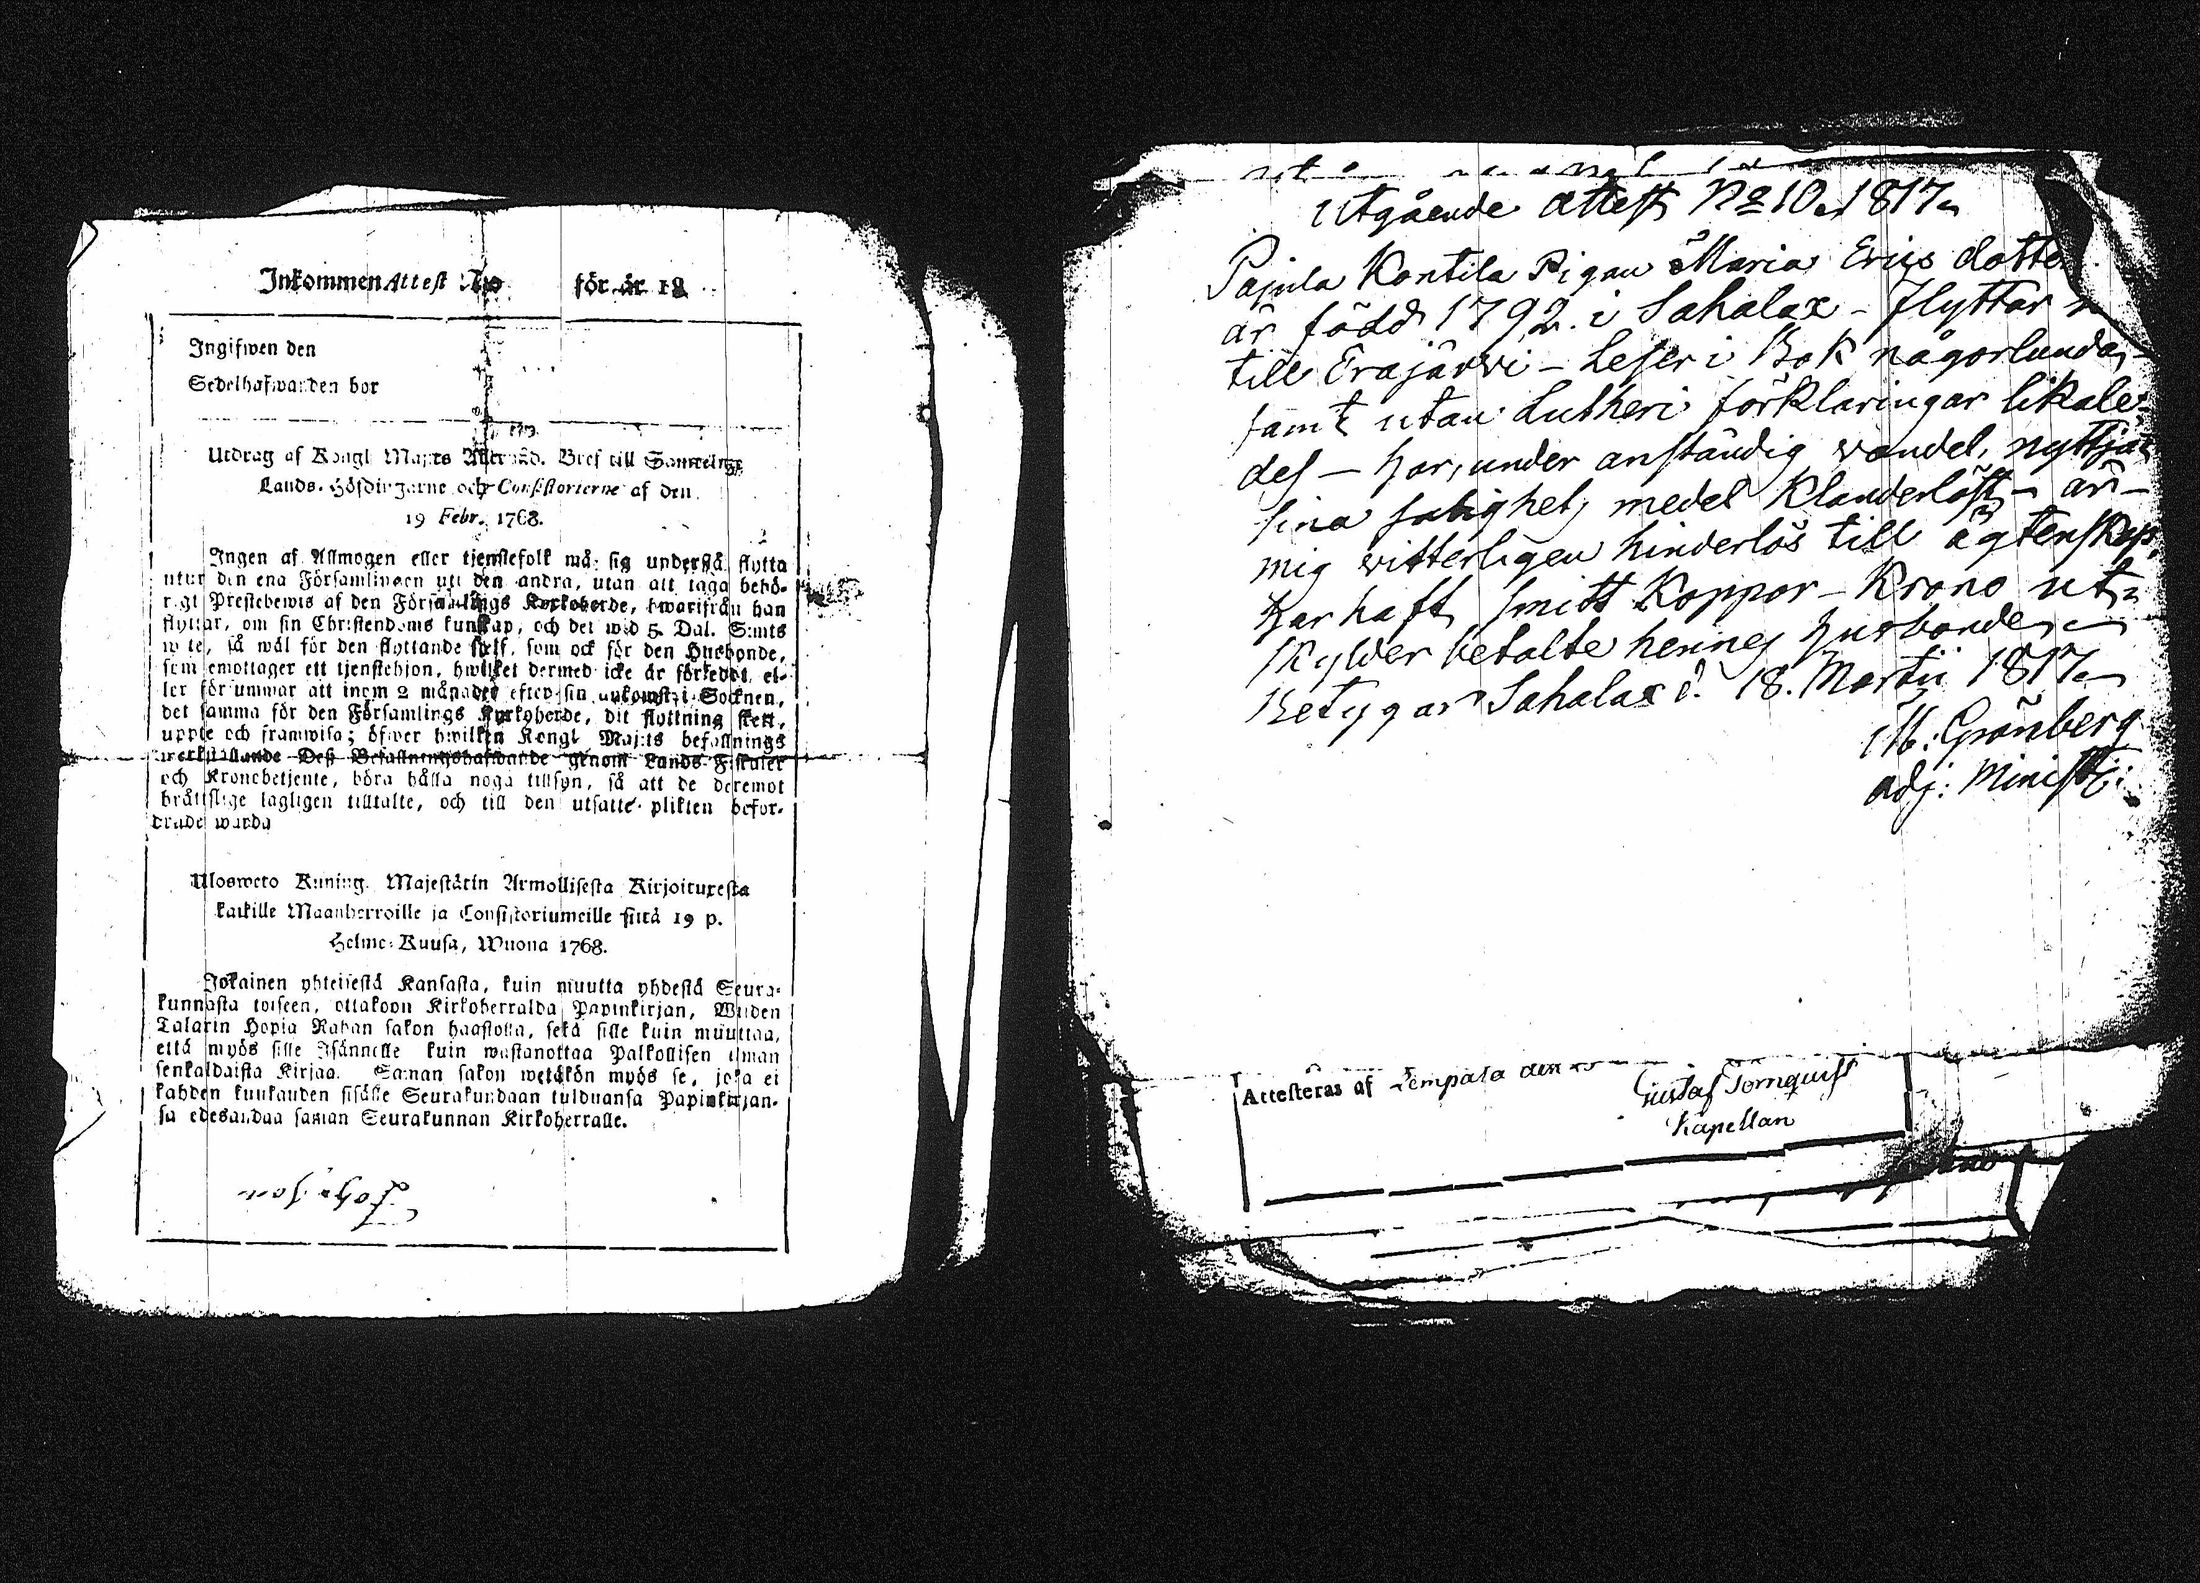 Inkommen Attest No för år 18
Ingifwen den
Sedelhafwanden bor
Utdrag af Kongl Maj:ts Bref till Samtelige
Lands-Höfdingarne och Consistorierne af den
19 Febr. 1768.
Ingen af Allmogen eller tjenstefolk må sig understå flytta
utur den ena Församlingen uti den andra, utan att taga behö-
rigt Prestebewis af den Församlings Kyrkoherde, hwarifrån han
flyttar, om sin Christendoms kunskap, och det wid 5 Dal. S:mts
wite, så wäl för den flyttande sjelf, som ock för den Husbonde,
som emottager ett tjenstehjon, hwilket dermed icke är försedt, el-
ler försummar att inom 2 månader efter sin ankomst i Socknen,
det samma för den Församlings Kyrkoherde, dit flyttning skett,
uppte och framwisa; öfwer hwilken Kongl Maj:ts befallnings
werkställande Deß Befallningshafwande genom Lands-Fiskaler
och Kronobetjente, böra hålla noga tillsyn, så att de deremot
bråttslige lagligen tilltalte, och till den utsatte plikten befor-
drade warda
Ulosweto Kuning. Majestätin Armollisesta Kirjoituxesta
kaikille Maanherroille ja Consistoriumeille siitä 19 p.
Helme-Kuusa, Wuona 1768.
Jokainen yhteisestä Kansasta, kuin muutta yhdestä Seura-
kunnasta toiseen, ottakoon Kirkoherralda Papinkirjan, Wiiden
Talarin Hopia Rahan sakon haastolla, sekä sille kuin muuttaa,
että myös sille Isännelle kuin wastanottaa Palkollisen ilman
senkaldaista Kirjaa. Saman sakon wetäkön myös se, joka ei
kahden kuukauden sisälle Seurakundaan tulduansa Papinkirjan-
sa edesandaa saman Seurakunnan Kirkoherralle.
Utgående attest No 10. 1817.
Pajula Kontila Pigan Maria Erics dotter
är född 1792. i Sahalax - flyttar
till Erajärvi - Leser i Bok någorlunda,
samt utan Lutheri förklaringar likale-
des - har, under anständig wandel, nyttjat
sina salighets medel klanderlöst - är
mig witterligen hinderlös till ägtenskap,
har haft smitt Koppor - Krono ut-
skylder betalte hennes husbonde,
Betygar Sahalax d. 18. Martii 1817.
M: Grönberg
adj: Minist:
Attesteras af Lempala den
Gustaf Törnquist
Kapellan